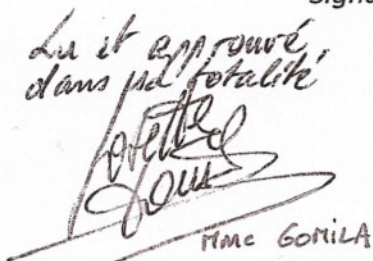 Signa
Lu et approuvé,
dans sa totalité
Mme GOMILA